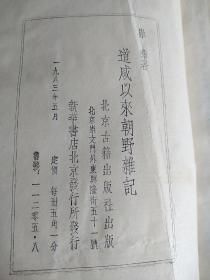 崇彝著
道咸以來朝野雜記
北京古籍出版社出版
北京崇文門外東興隆街五十一號
新華書店北京發行所發行
一九八三年五月 定價 每冊五角一分
書號：一一二零五·八